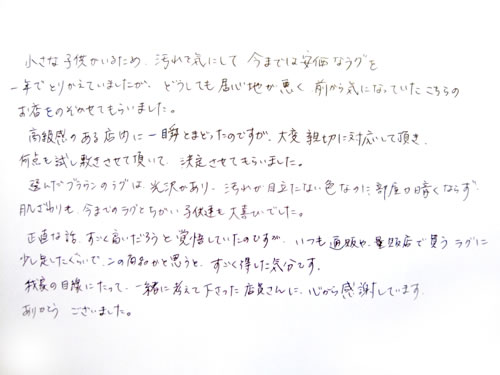 小さな子供がいるため、汚れて気にして 今までは安価なラグを
一年でとりかえていましたが、どうしても居心地が悪く 前から気になっていた こちらの
お店をのぞかせてもらいました。
高級感のある店内に一瞬とまどったのですが、大変 親切に対応して頂き、
何点も試し敷きさせて頂いて、決定させてもらいました。
選んだブラウンのラグは、光沢があり、汚れが目立たない色なのに部屋が暗くならず、
肌ざわりも、今までのラグとちがい 子供達も大喜びでした。
正直な話、すごく高いだろうと覚悟していたのですが、いつも通販や量販店で買うラグに
少し足したくらいで、この内容かと思うと、すごく得した気分です。
我家の目線にたって、一緒に考えて下さった店員さんに、心から感謝しています。
ありがとう ございました。